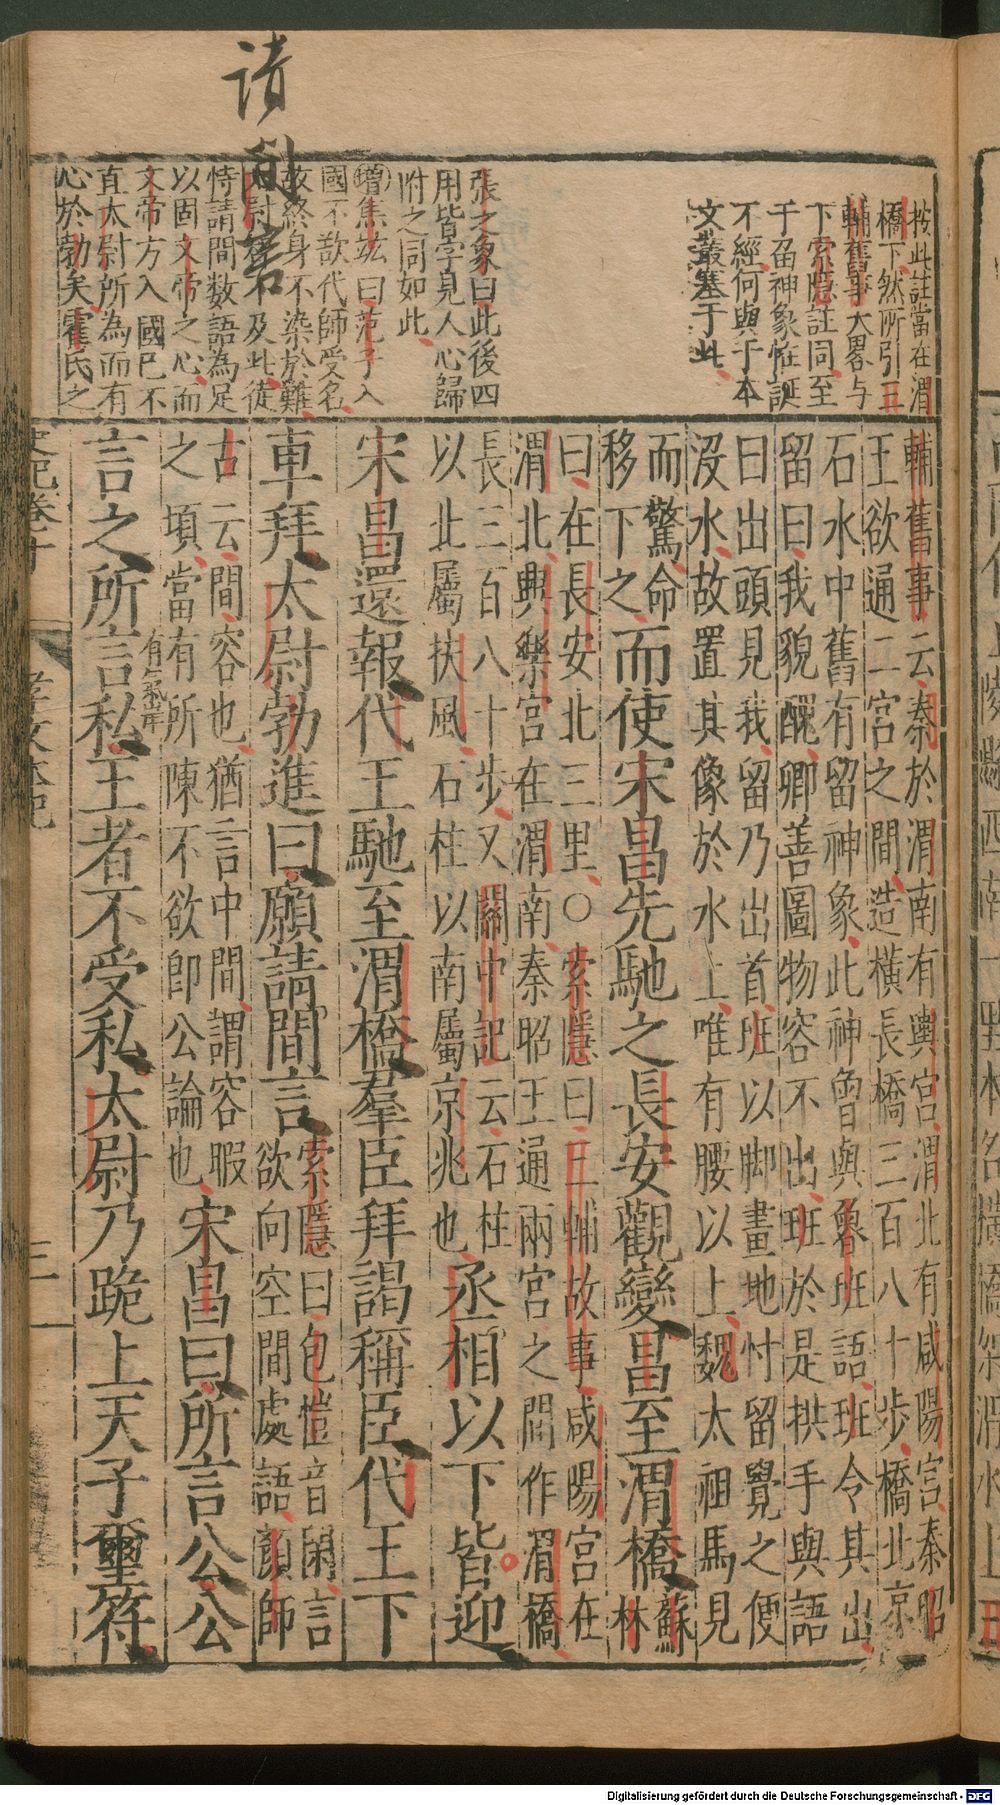 請間言
按此註當在渭
橋下然所引三
輔舊事大畧与
下索隱註同至
于留神象恠誕
不經何與于本
文叢塞于此
張之象曰此後四
用皆字見人心歸
附之同如此
增焦竑曰范子入
國不欲代師受名
故終身不染於難
太尉不及此徒
恃請間数語為足
以固文帝之心而
文帝方入國已不
直太尉所為而有
心於勃矣霍氏之
輔舊事云秦於渭南有輿宮渭北有咸陽宮秦昭
王欲通二宮之間造橫長橋三百八十步橋北京
石水中舊有留神象此神曾與魯班語班令其出
留曰我貌醜卿善圖物容不出班於是拱手與語
曰出頭見我留乃出首班以脚畫地忖留覺之便
沒水故置其像於水上唯有腰以上魏太祖馬見
而驚命
移下之而使宋昌先馳之長安觀變昌至渭橋蘇
林
曰在長安北三里○索隱曰三輔故事咸陽宮在
渭北興樂宮在渭南秦昭王通兩宮之間作渭橋
長三百八十步又關中記云石柱
以北屬扶風石柱以南屬京兆也丞相以下皆迎
宋昌還報代王馳至渭橋羣臣拜謁稱臣代王下
車拜太尉勃進曰願請間言索隱曰包愷音閑言
欲向空間處語顏師
古云間容也猶言中間謂容暇
之頃當有所陳不欲即公論也宋昌曰所言公公
有氣岸
言之所言私王者不受私太尉乃跪上天子璽符
史記卷十
孝文本紀
三